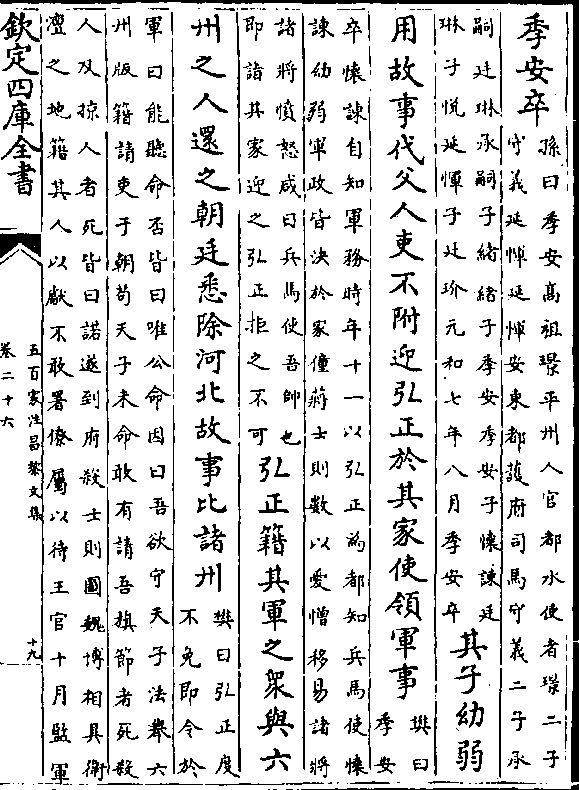 季安卒
孫曰季安髙祖璟平州人官都水使者璟二子
守義延惲延惲安東都護府司馬守義二子承
嗣廷琳承嗣子緒緒子季安季安子懷諫廷
琳子悦延惲子廷玠元和七年八月季安卒
其子幼弱
用故事代父人吏不附迎弘正於其家使領軍事
樊曰
季安
卒懷諫自知軍務時年十一以弘正為都知兵馬使懷
諫幼弱軍政皆決於家僮蔣士則數以愛憎移易諸將
諸將憤怒咸曰兵馬使吾帥也
即詣其家迎之弘正拒之不可
弘正籍其軍之衆與六
州之人還之朝廷悉除河北故事比諸州
樊曰弘正度
不免即令於
軍曰能聽命否皆曰唯公命因曰吾欲守天子法舉六
州版籍請吏于朝苟天子未命敢有請吾旗節者死殺
人及掠人者死皆曰諾遂到府殺士則圖魏博相具衛
澶之地籍其人以獻不敢署僚屬以待王官十月監軍
欽定四庫全書
五百家注昌黎文集
卷二十六
十九